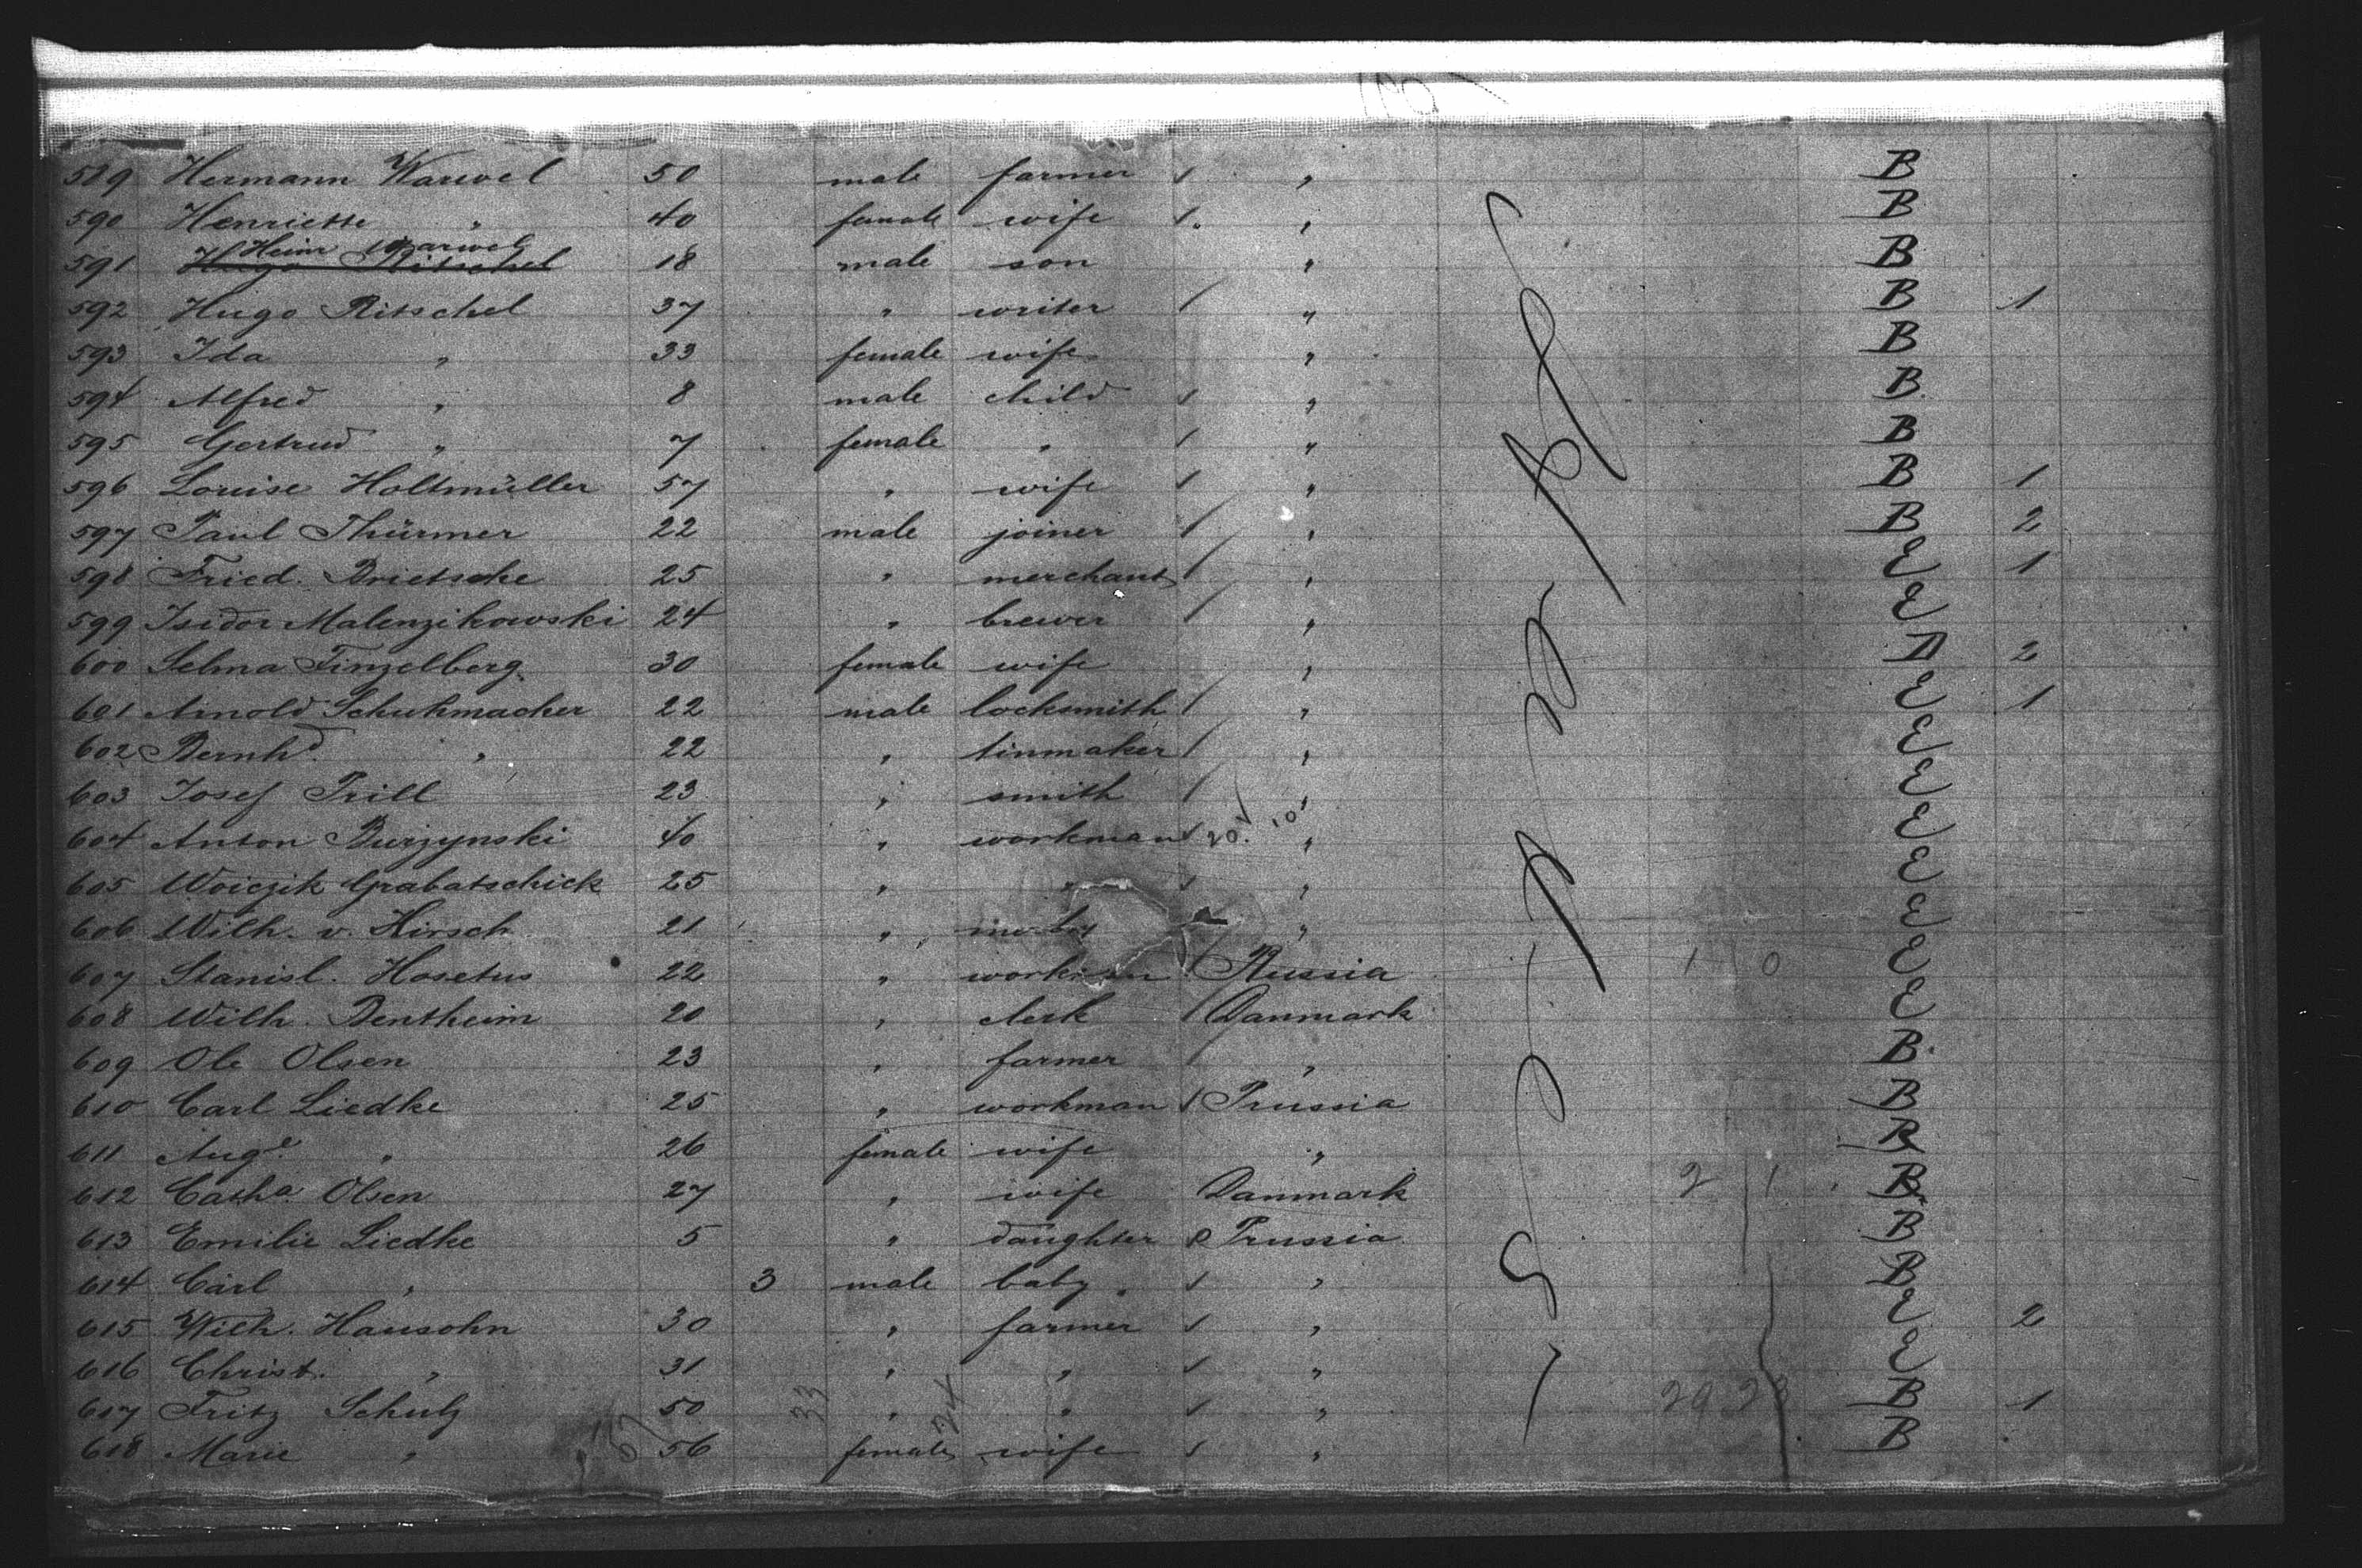 589 Hermann Warwel 50 male farmer / "
590 Henriette " 40 female wife / " B
591 Heinr Warwel Hugo Ritschel 18 male son " B
592 Hugo Ritschel 37 " writer / " B 1
593 Ida " 33 female wife " B
594 Alfred " 8 male child / " B
595 Gertrud " 7 female " / " B
596 Louise Holtmüller 57 " wife / " B 1
597 Paul Thürmer 22 male joiner / " B 2
598 Fried. Brietsche 25 " merchant / " E 1
599 Isidor Malenzikowski 24 " brewer / " E
600 Selma Finzelberg 30 female wife " 2
601 Arnold Schuhmacher 22 male locksmith / " E 1
602 Bernhd. " 22 " tinmaker / " E
603 Josef Prill 23 " smith / " E
604 Anton Burzynski 40 " workman / 20. 10 " E
605 Woiczik Grabatschick 25 " " / " E
606 Wilh. v. Hirsch 21 " " E
607 Stanisl. Hosetus 22 " workman / Russia 1 0 E
608 Wilh. Bentheim 20 " clerk / Danmark E
609 Ole Olsen 23 " farmer " B
610 Carl Liedke 25 " workman / Prussia B
611 Auge. " 26 female wife " B
612 Catha Olsen 27 " wife Danmark 2 1 B
613 Emilie Liedke 5 " daughter Prussia B
614 Carl " 3 male baby / " B
615 Wilh. Hausohn 30 " farmer / " E 2
616 Christ. " 31 " " / " E
617 Fritz Schulz 50 33 " 24 " / " 29 28 B 1
618 Marie " 57 56 female wife / " B